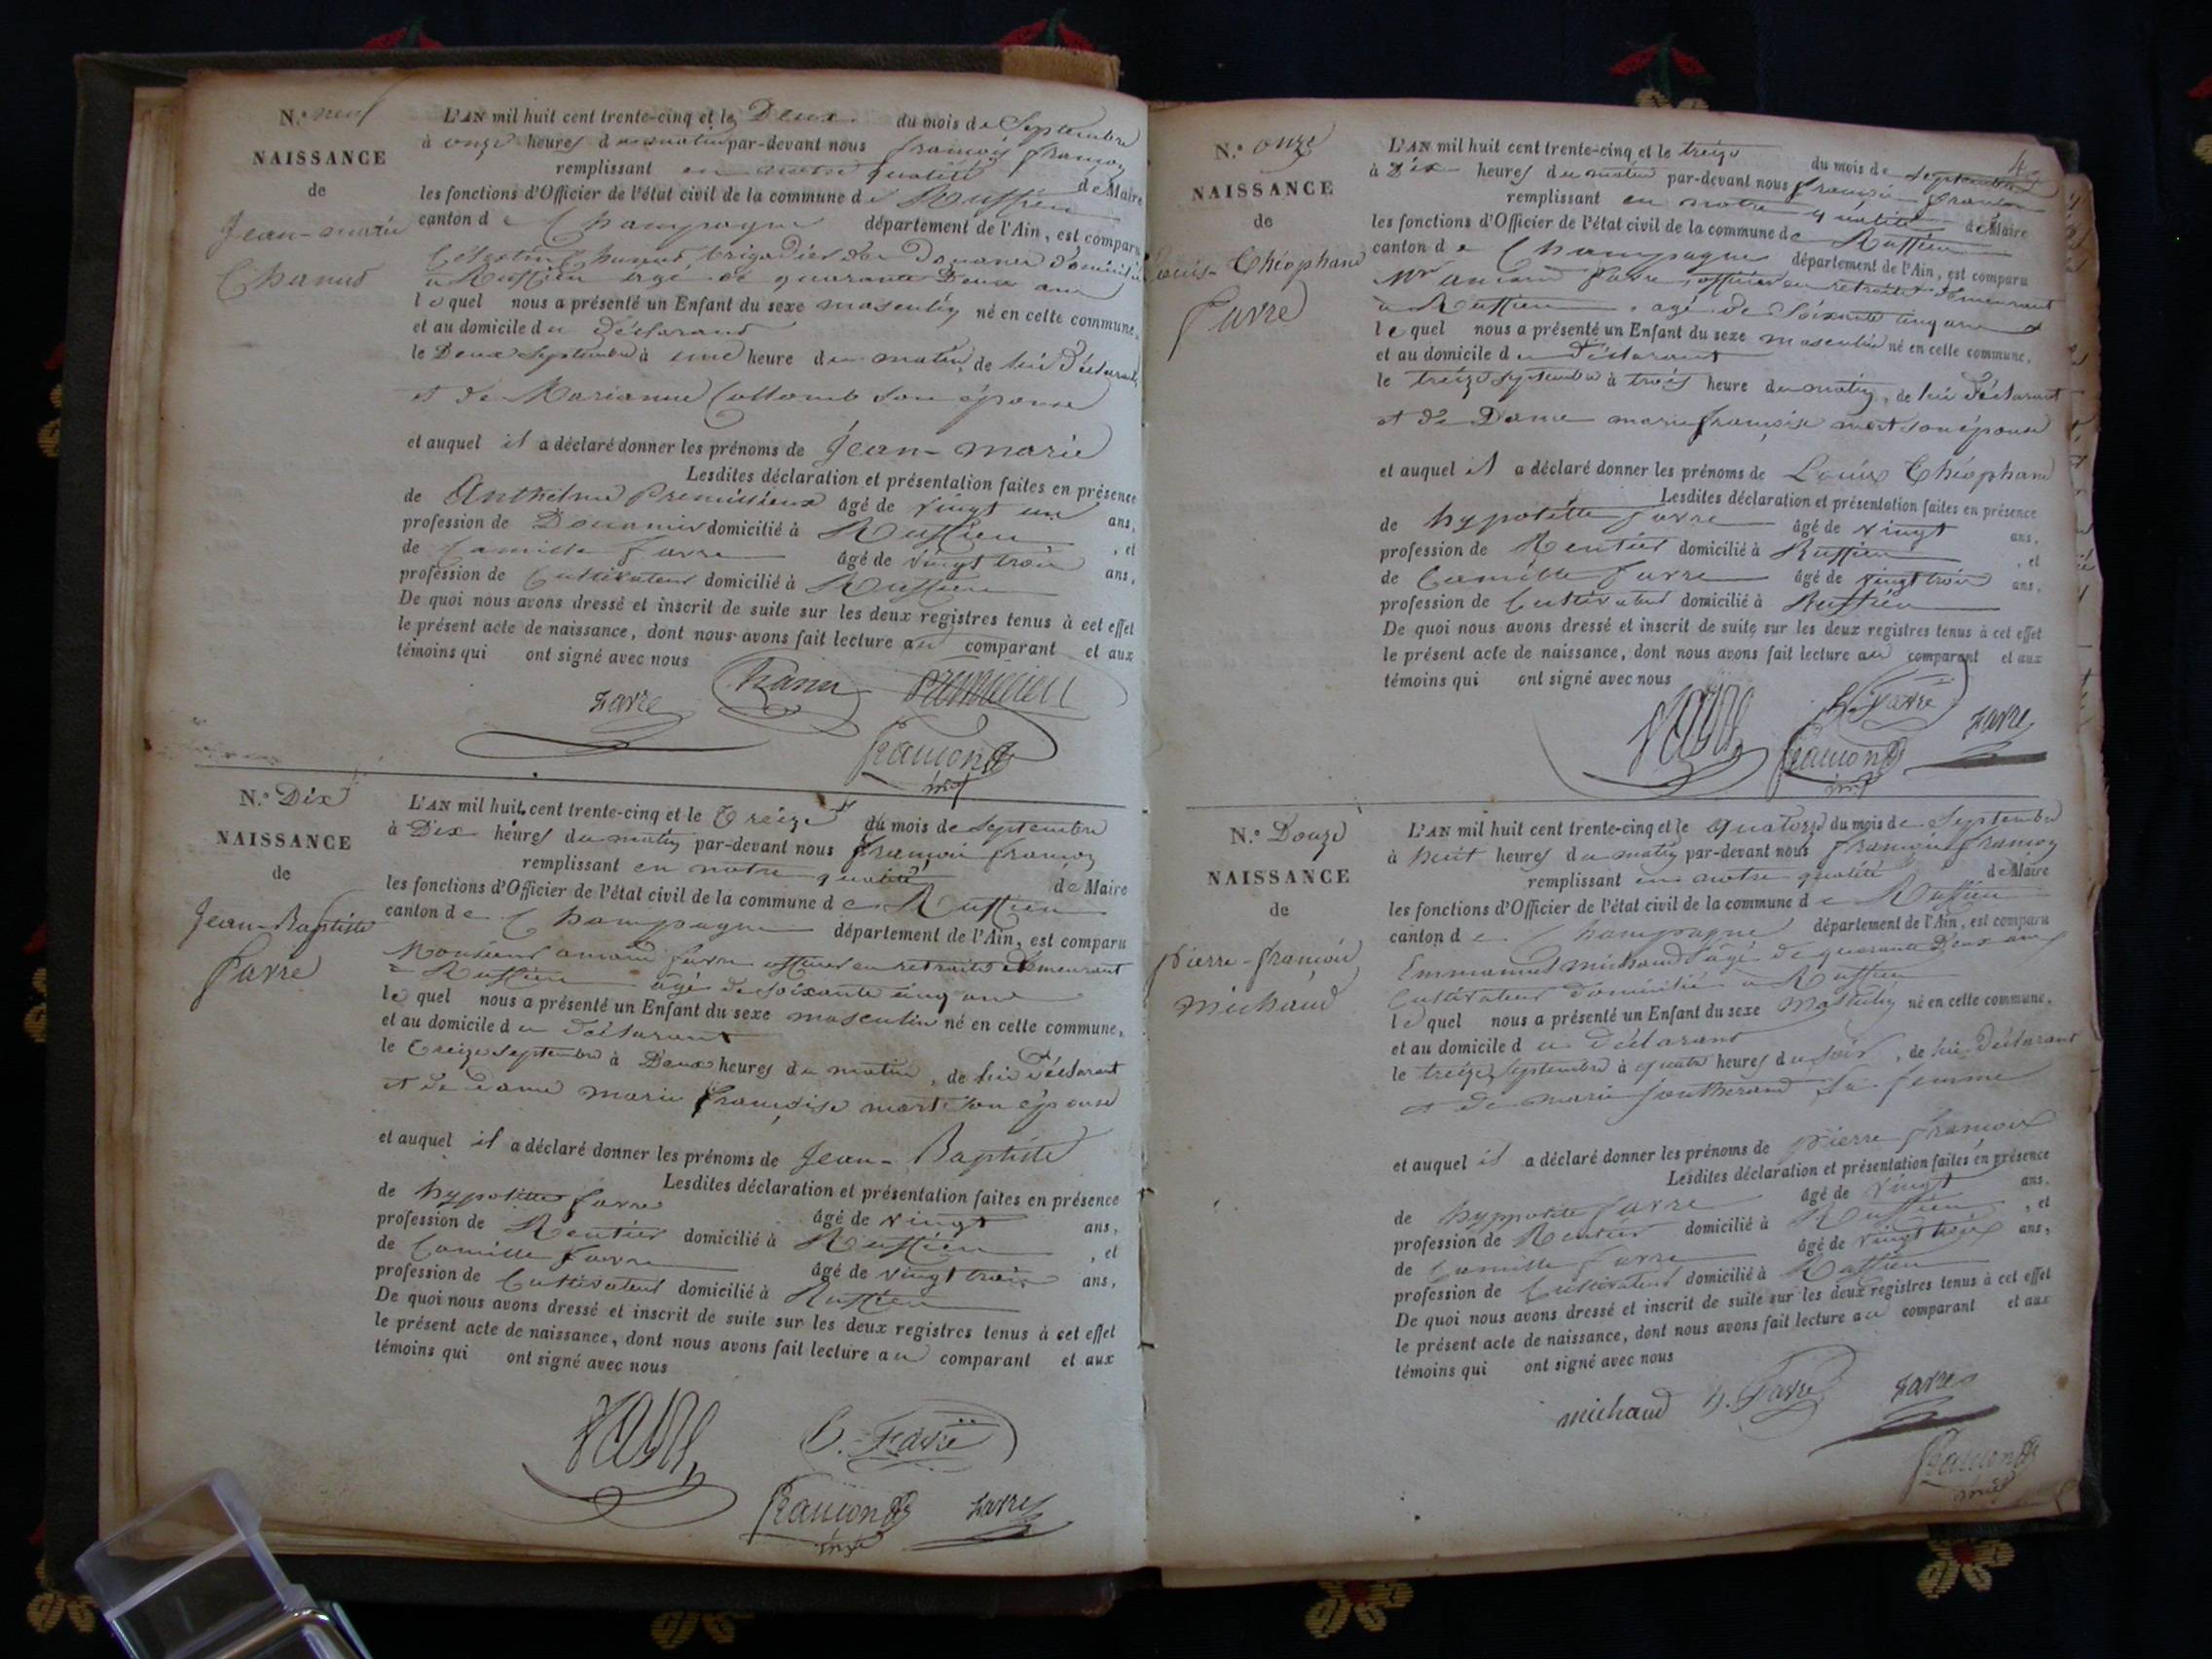 N.° neuf
NAISSANCE
de
Jean-marie
Chanus
L'AN mil huit cent trente-cinq et le Deux du mois de Septembre
à onze heures du matin par-devant nous françois francon
remplissant en notre qualité de Maire
les fonctions d'Officier de l'état civil de la commune de Ruffieu
canton de Champagne département de l'Ain, est comparu
brigadier des Douanes domicilié
à Ruffieu agé de quarante Deux ans
lequel nous a présenté un Enfant du sexe masculin né en cette commune,
et au domicile du déclarant
le Deux Septembre à une heure du matin, de lui déclarant
et de Marianne Collomb son épouse
et auquel il a déclaré donner les prénoms de Jean-marie
Lesdites déclaration et présentation faites en présence
de Anthelme Premillieux âgé de vingt un ans,
profession de Douanier domicilié à Ruffieu, et
de Camille favre âgé de vingt trois ans,
profession de Cultivateur domicilié à Ruffieu
De quoi nous avons dressé et inscrit de suite sur les deux registres tenus à cet effet
le présent acte de naissance, dont nous avons fait lecture au comparant et aux
témoins qui ont signé avec nous
favre
N.° Dix
NAISSANCE
de
Jean-Baptiste
favre
L'AN mil huit cent trente-cinq et le Treize du mois de Septembre
à Dix heures du matin par-devant nous françois francon
remplissant en notre qualité de Maire
les fonctions d'Officier de l'état civil de la commune de Ruffieu
canton de Champagne département de l'Ain, est comparu
Monsieur amand favre officier en retraite demeurant
à Ruffieu agé de soixante cinq ans
lequel nous a présenté un Enfant du sexe masculin né en cette commune,
et au domicile du déclarant
le Treize Septembre à Deux heures du matin, de lui déclarant
et de dame marie françoise mort son épouse
et auquel il a déclaré donner les prénoms de Jean-Baptiste
Lesdites déclaration et présentation faites en présence
de hypolitte favre âgé de vingt ans,
profession de Rentier domicilié à Ruffieu, et
de Camille favre âgé de vingt trois ans,
profession de Cultivateur domicilié à Ruffieu
De quoi nous avons dressé et inscrit de suite sur les deux registres tenus à cet effet
le présent acte de naissance, dont nous avons fait lecture au comparant et aux
témoins qui ont signé avec nous
favre
4
N.° onze
NAISSANCE
de
Louis-Théophane
favre
L'AN mil huit cent trente-cinq et le treize du mois de septembre
à Dix heures du matin par-devant nous françois francon
remplissant en notre qualité de Maire
les fonctions d'Officier de l'état civil de la commune de Ruffieu
canton de Champagne département de l'Ain, est comparu
Mr amand favre, officier en retraite demeurant
à Ruffieu, agé de soixante cinq ans
lequel nous a présenté un Enfant du sexe masculin né en cette commune,
et au domicile du déclarant
le treize septembre à trois heure du matin, de lui déclarant
et de Dame marie françoise mort son épouse
et auquel il a déclaré donner les prénoms de Louis Théophane
Lesdites déclaration et présentation faites en présence
de hypolitte favre âgé de vingt ans,
profession de Rentier domicilié à Ruffieu, et
de Camille favre âgé de vingt trois ans,
profession de Cultivateur domicilié à Ruffieu
De quoi nous avons dressé et inscrit de suite sur les deux registres tenus à cet effet
le présent acte de naissance, dont nous avons fait lecture au comparant et aux
témoins qui ont signé avec nous
favre
N.° Douze
NAISSANCE
de
pierre-françois
michaud
L'AN mil huit cent trente-cinq et le quatorze du mois de Septembre
à huit heures du matin par-devant nous françois francon
remplissant en notre qualité de Maire
les fonctions d'Officier de l'état civil de la commune de Ruffieu
canton de Champagne département de l'Ain, est comparu
Emmanuel michaud agé de quarante Deux ans
Cultivateur domicilié à Ruffieu
lequel nous a présenté un Enfant du sexe masculin né en cette commune,
et au domicile du déclarant
le treize Septembre à quatre heures du soir, de lui déclarant
et de marie sa femme
et auquel il a déclaré donner les prénoms de pierre françois
Lesdites déclaration et présentation faites en présence
de hyppolite favre âgé de vingt ans,
profession de Rentier domicilié à Ruffieu, et
de Camille favre âgé de vingt trois ans,
profession de Cultivateur domicilié à Ruffieu
De quoi nous avons dressé et inscrit de suite sur les deux registres tenus à cet effet
le présent acte de naissance, dont nous avons fait lecture au comparant et aux
témoins qui ont signé avec nous
michaud h. favre favre